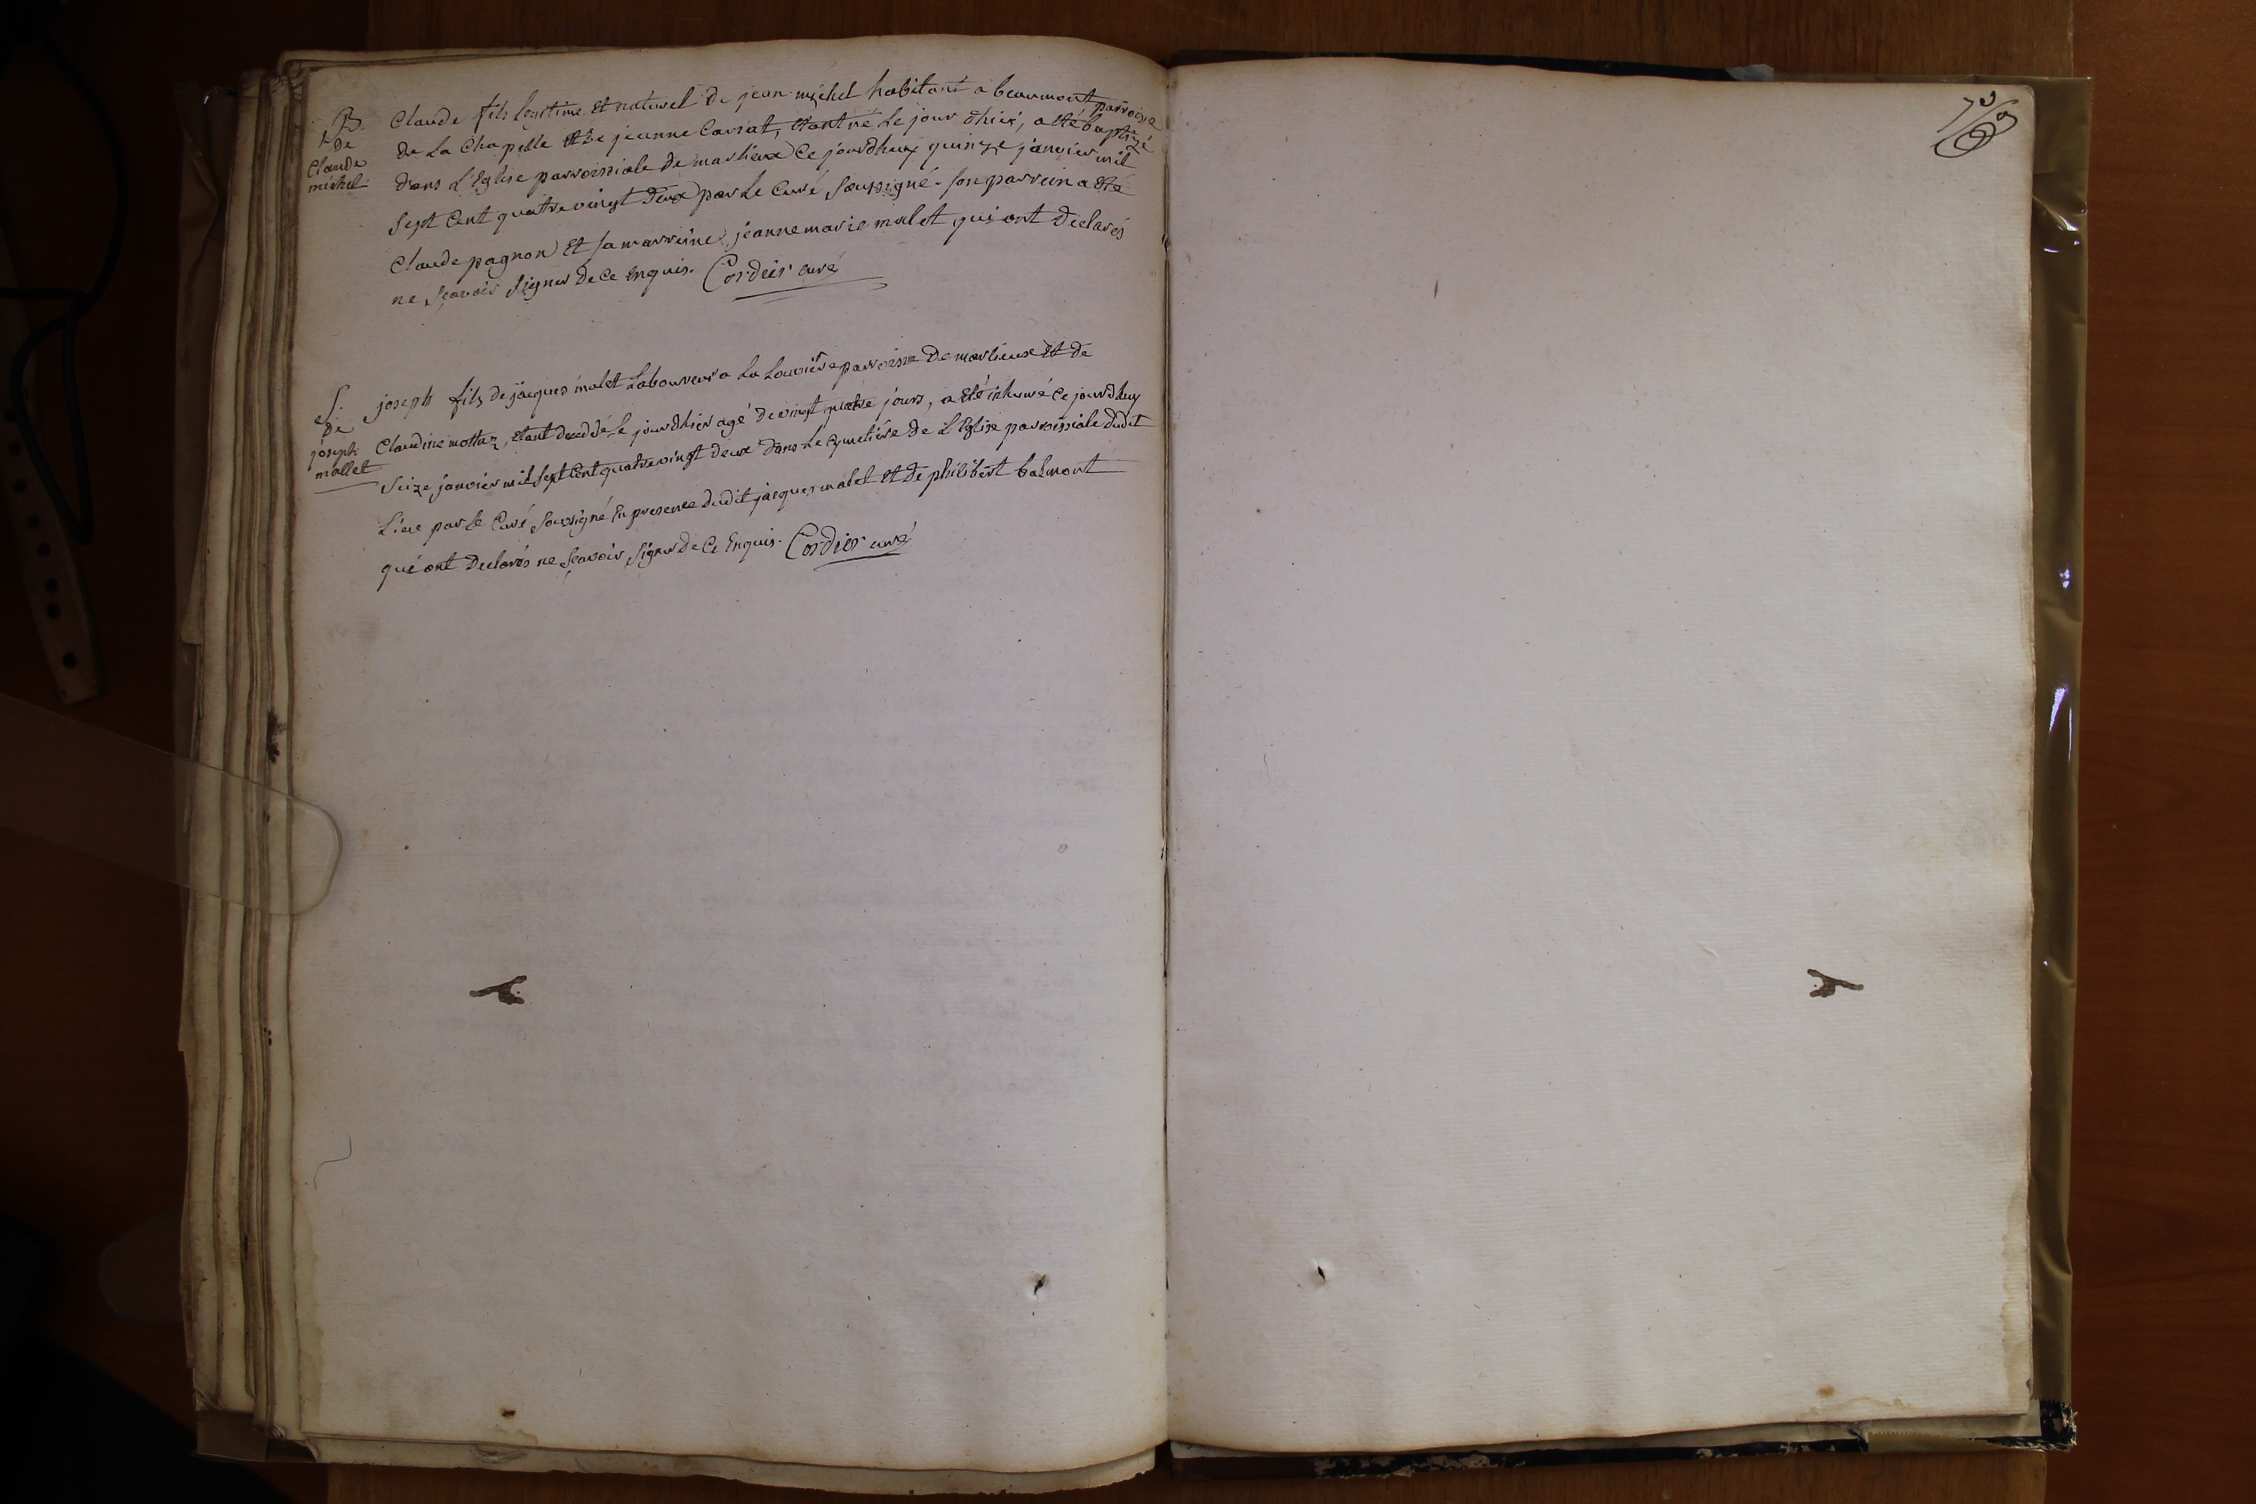 B.
de
Claude
michel
Claude fils legitime et naturel de jean michel habitant a beaumont parroisse
de La Chapelle et de jeanne Carriat, etant né le jour d'hier, a eté baptizé
dans L'Eglise parroissiale de marlieux Ce jourdhuy quinze janvier mil
Sept Cent quatre vingt deux par Le Curé Soussigné. son parrein a eté
Claude pagnon et sa marreine jeanne marie malet qui ont declarés
ne Sçavoir Signer de Ce Enquis. Cordier curé
S.
de
joseph
mallet
joseph fils de jacques malet Laboureur a La Louvière parroisse de marlieux et de
Claudine mottaz, etant decedé le jour d'hier agé de vingt quatre jours, a eté inhumé ce jourdhuy
Seize janvier mil Sept Cent quatre vingt deux dans Le Cymetière de L'Eglise parroissiale dudit
Lieu par le Curé Soussigné En presence dudit jacques malet et de philibert balmont
qui ont declarés ne Sçavoir Signer de Ce Enquis. Cordier curé